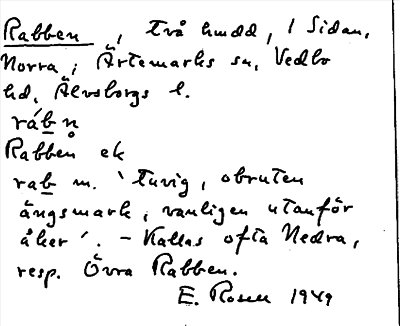 Rabben, två hmdd, i Sidan,
Norra, i Ärtemarks sn, Vedbo
hd, Älvsborgs l.
rábn̥
Rabben ek
rab m. 'tuvig, obruten
ängsmark, vanligen utanför
åker'. – Kallas ofta Nedra,
resp. Övra Rabben.
E. Rosell 1949